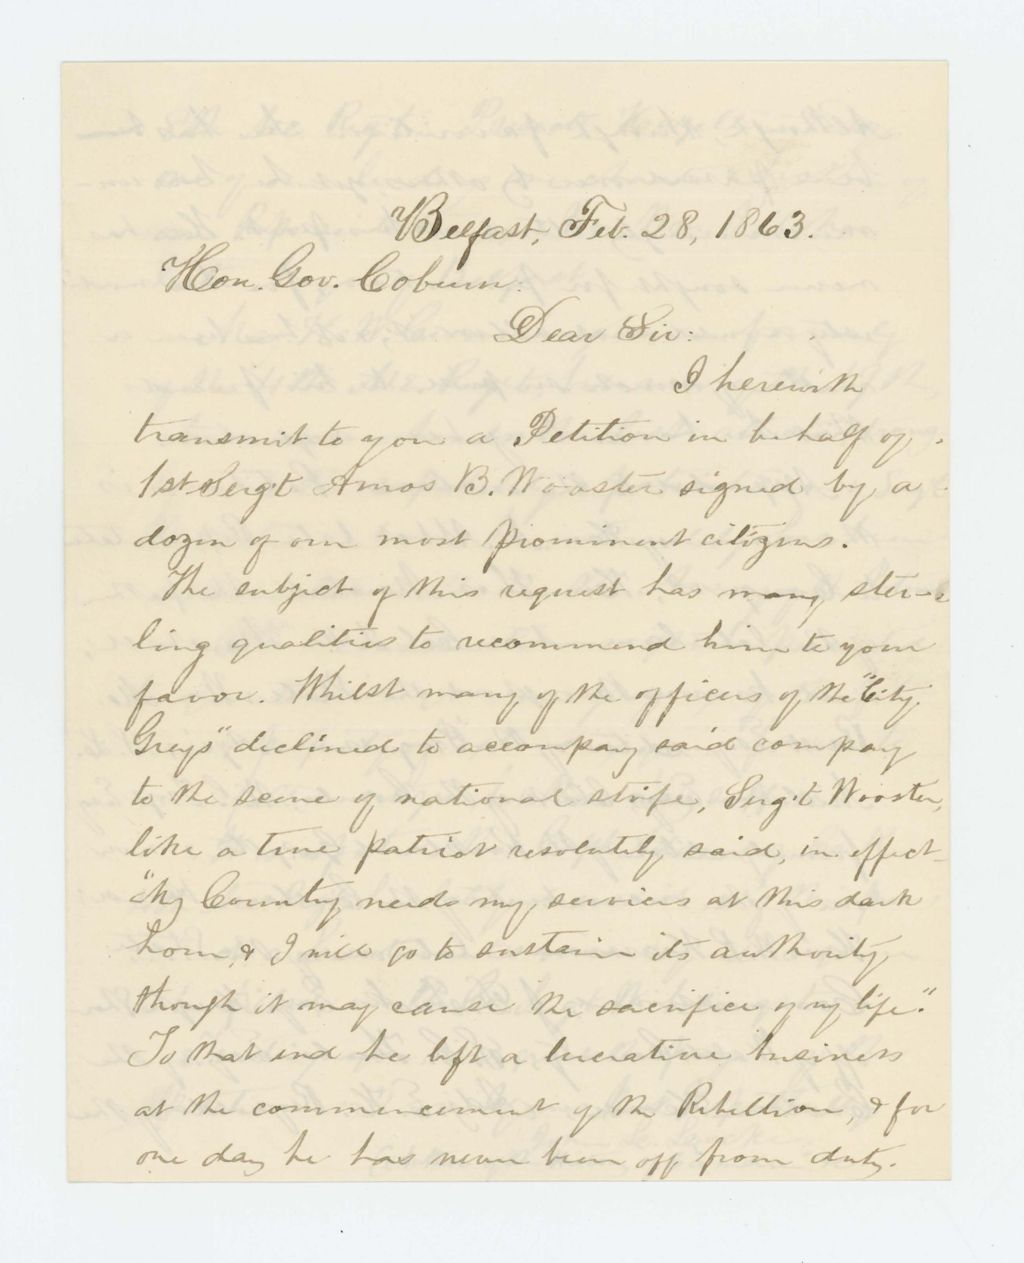 Belfast, Feb. 28, 1863.
Hon. Gov. Coburn:
Dear Sir:
I herewith
transmit to you a Petition in behalf of
1st Serg't Amos B. Wooster signed by a
dozen of our most prominent citizens.
The subject of this request has many ster-
ling qualities to recommend him to your
favor. Whilst many of the officers of the "City
Greys" declined to accompany said company
to the scene of national strife, Serg't Wooster,
like a true patriot resolutely said, in effect-
"My Country needs my services at this dark
hour, & I will go to sustain its authority
though it may cause the sacrifice of my life."
To that end he left a lucrative business
at the commencement of the Rebellion, & for
one day he has never been off from duty.